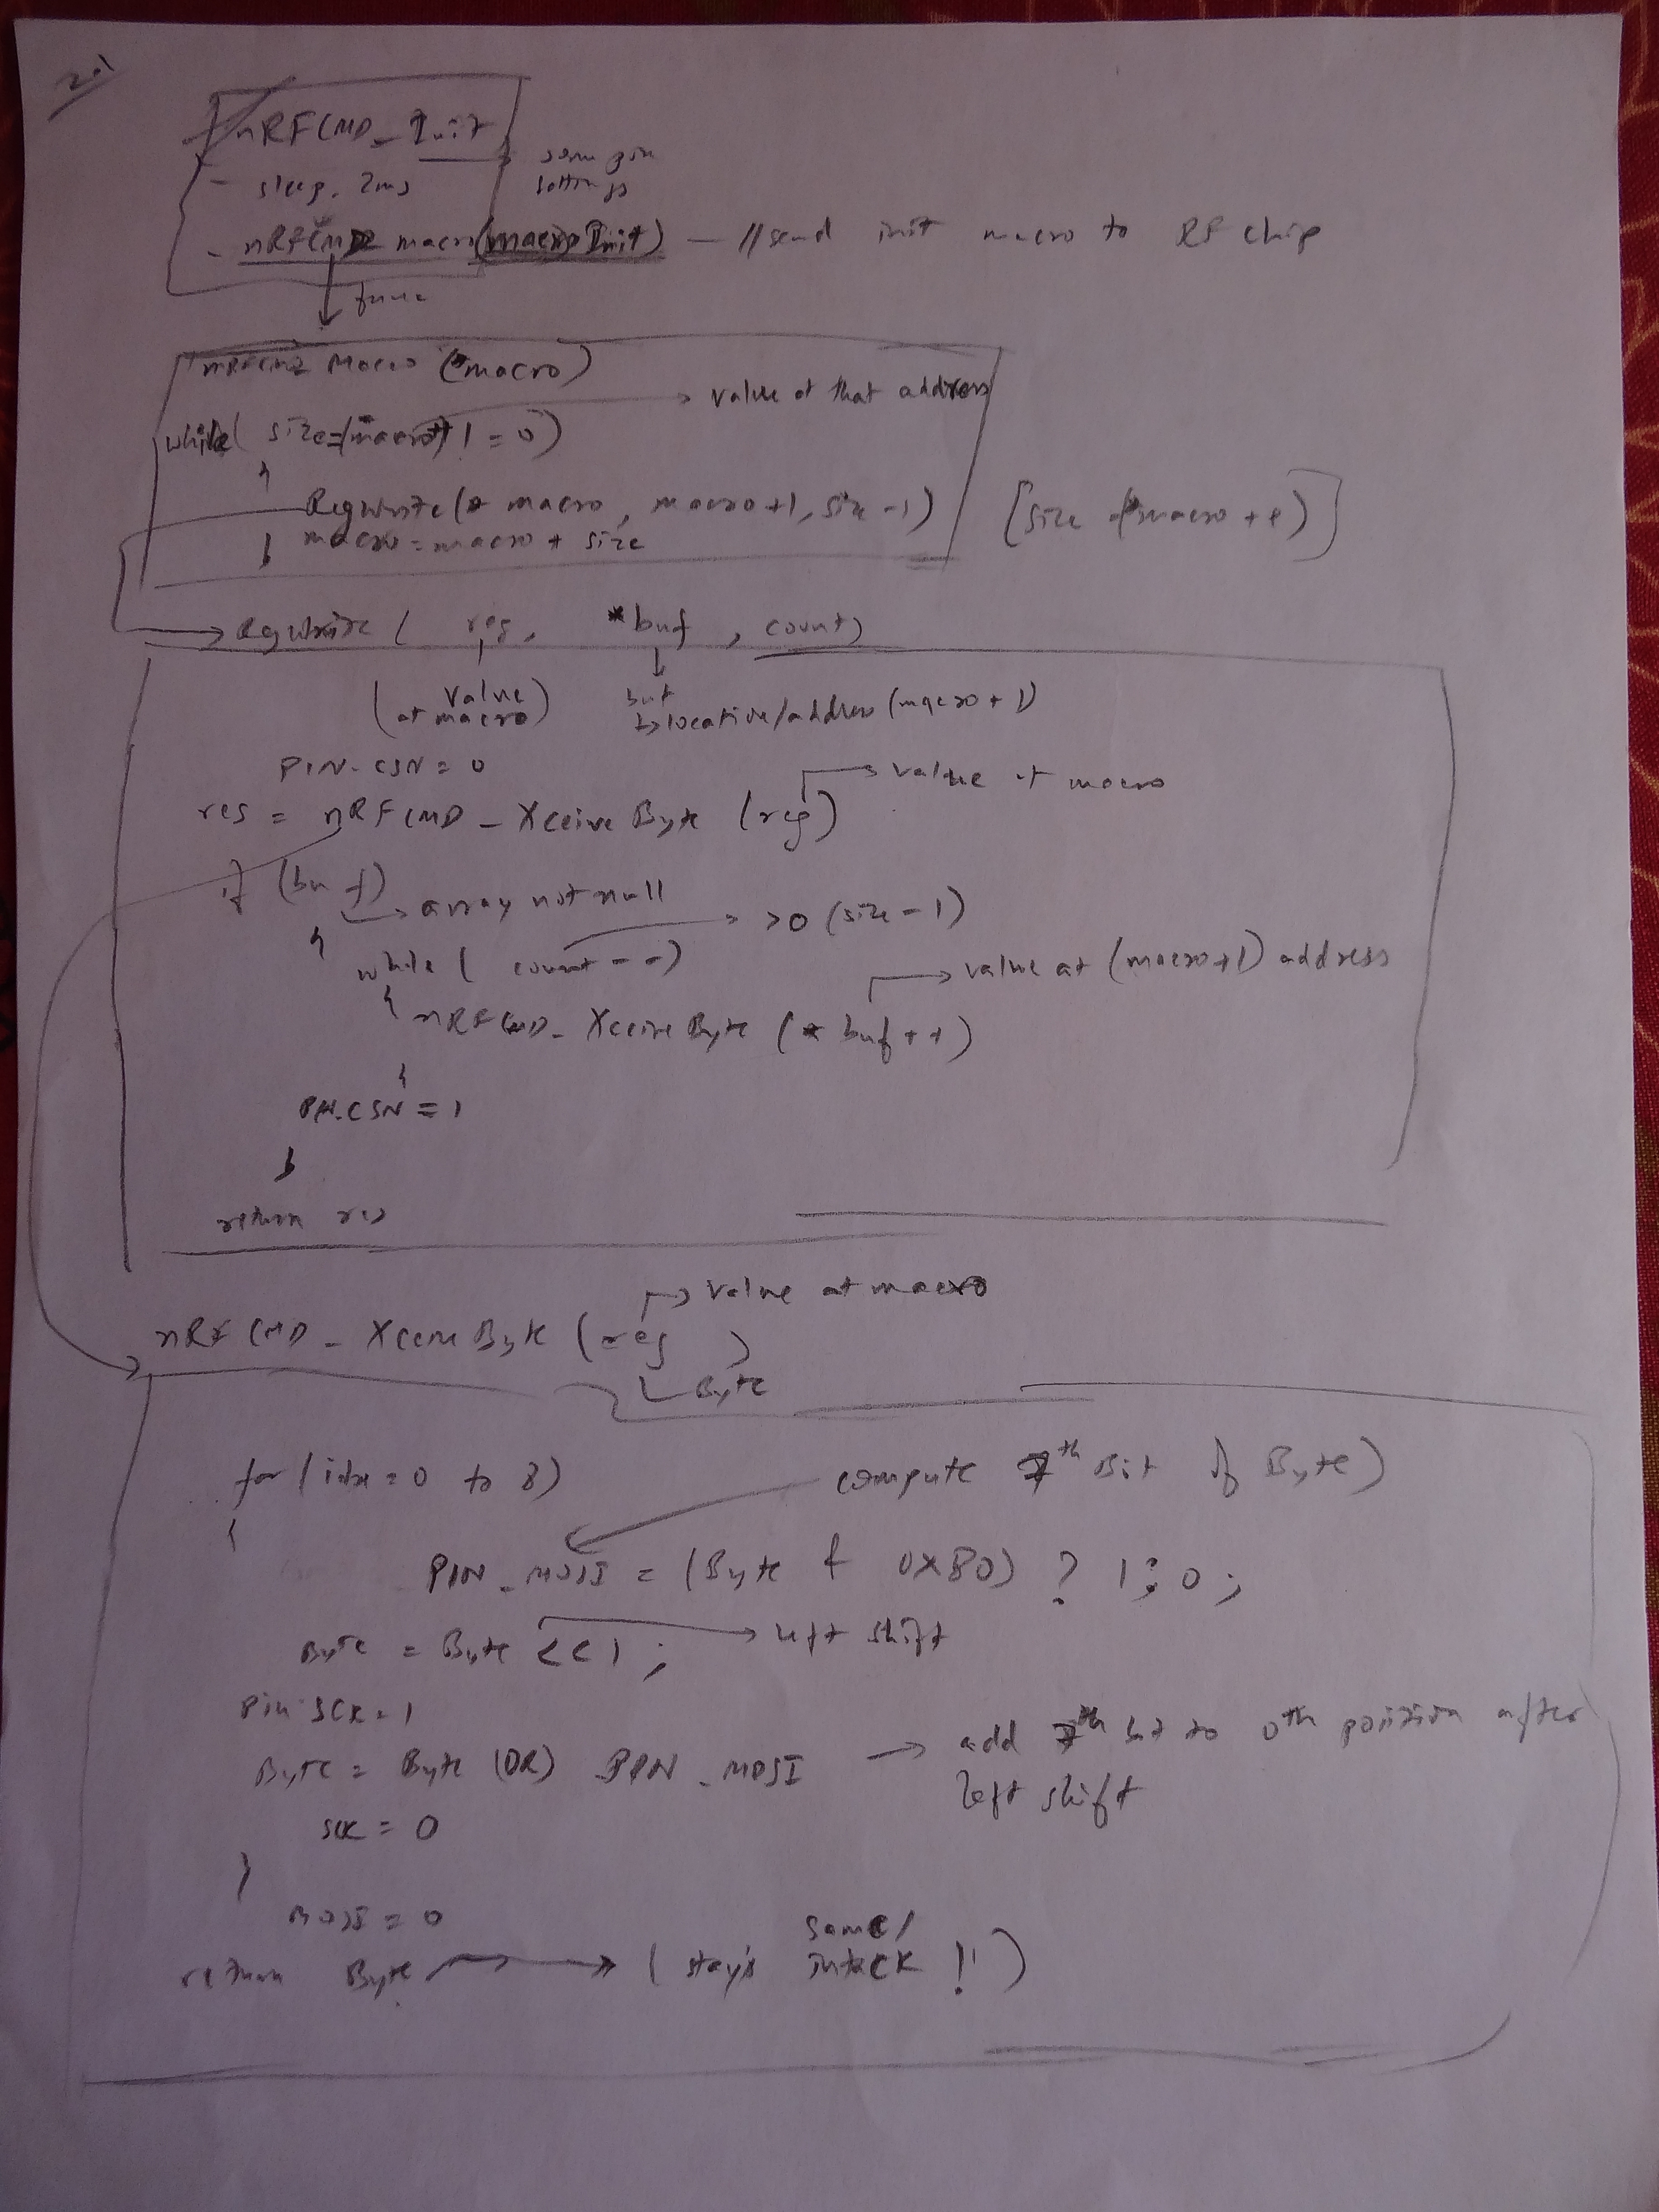 2.1
nRFCMD_Init
some pin
settings
- sleep. 2ms
- nRFCMD macro(macroInit) - // send init macro to RF chip
func
nRFCMD Macro (*macro)
value at that address
while( size=(*macro++) != 0)
{
RegWrite(* macro, macro+1, size-1)
macro = macro + size
}
[size (*macro++)]
RegWrite ( reg, *buf , count)
(value at macro)
buf
location/address (macro+1)
PIN-CSN = 0
value at macro
res = nRFCMD - XceiveByte (reg)
if (buf)
array not null
>0 (size-1)
{
while ( count--)
value at (macro+1) address
{ nRFCMD- XceiveByte (* buf++)
}
PIN.CSN = 1
}
return res
value at macro
nRFCMD - XceiveByte (reg )
Byte
for (idx = 0 to 8)
compute 7th Bit of Byte)
{
PIN_MOSI = (Byte & 0X80) ? 1:0;
Byte = Byte <<1;
left shift
Pin SCK=1
Byte = Byte (OR) PIN _ MOSI
add 7th bit to 0th position after
left shift
sck = 0
}
MOSI = 0
return Byte
( stays same/ intack !!)